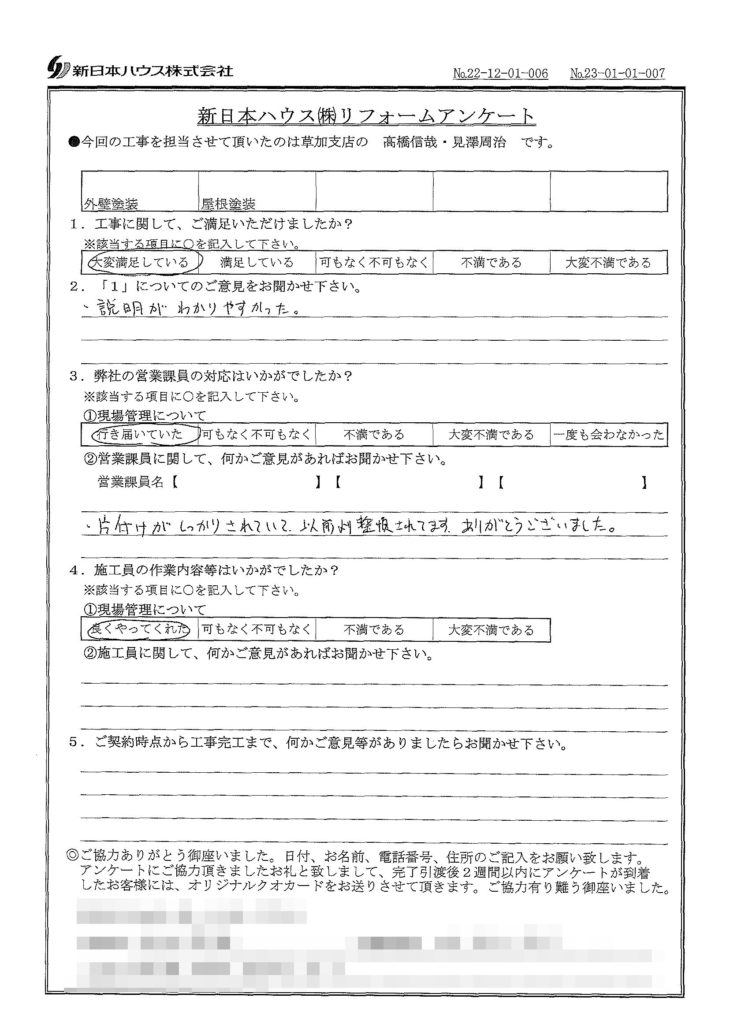 新日本ハウス株式会社
№22-12-01-006 №23-01-01-007
新日本ハウス㈱リフォームアンケート
●今回の工事を担当させて頂いたのは草加支店の 髙橋信哉・見澤周治 です。
外壁塗装 屋根塗装
1．工事に関して、ご満足いただけましたか？
※該当する項目に○を記入して下さい。
大変満足している 満足している 可もなく不可もなく 不満である 大変不満である
2．「1」についてのご意見をお聞かせ下さい。
・説明がわかりやすかった。
3．弊社の営業課員の対応はいかがでしたか？
※該当する項目に○を記入して下さい。
①現場管理について
行き届いていた 可もなく不可もなく 不満である 大変不満である 一度も会わなかった
②営業課員に関して、何かご意見があればお聞かせ下さい。
営業課員名【 】【 】【 】
・片付けがしっかりされていて、以前より整頓されてます。ありがとうございました。
4．施工員の作業内容等はいかがでしたか？
※該当する項目に○を記入して下さい。
①現場管理について
良くやってくれた 可もなく不可もなく 不満である 大変不満である
②施工員に関して、何かご意見があればお聞かせ下さい。
5．ご契約時点から工事完工まで、何かご意見等がありましたらお聞かせ下さい。
◎ご協力ありがとう御座いました。日付、お名前、電話番号、住所のご記入をお願い致します。
アンケートにご協力頂きましたお礼と致しまして、完了引渡後２週間以内にアンケートが到着
したお客様には、オリジナルクオカードをお送りさせて頂きます。ご協力有り難う御座いました。